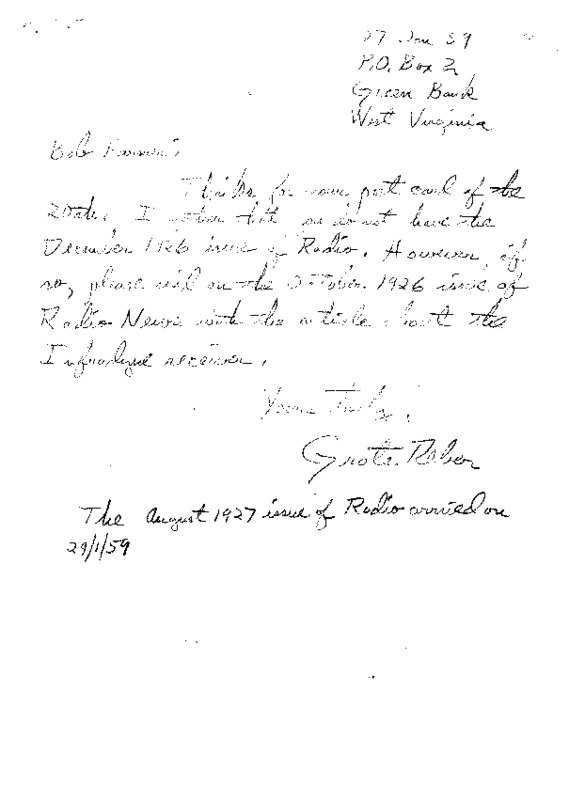 27 Jan 59
P.O. Box 2
Green Bank
West Virginia
Bob
Thanks for your post card of the
20th. I gather that you do not have the
December 1926 issue of Radio. However, if
so, please send on the October 1926 issue of
Radio News with the article about the
Infradyne receiver.
Yours Truly,
Grote Reber
The August 1927 issue of Radio arrived on
29/1/59